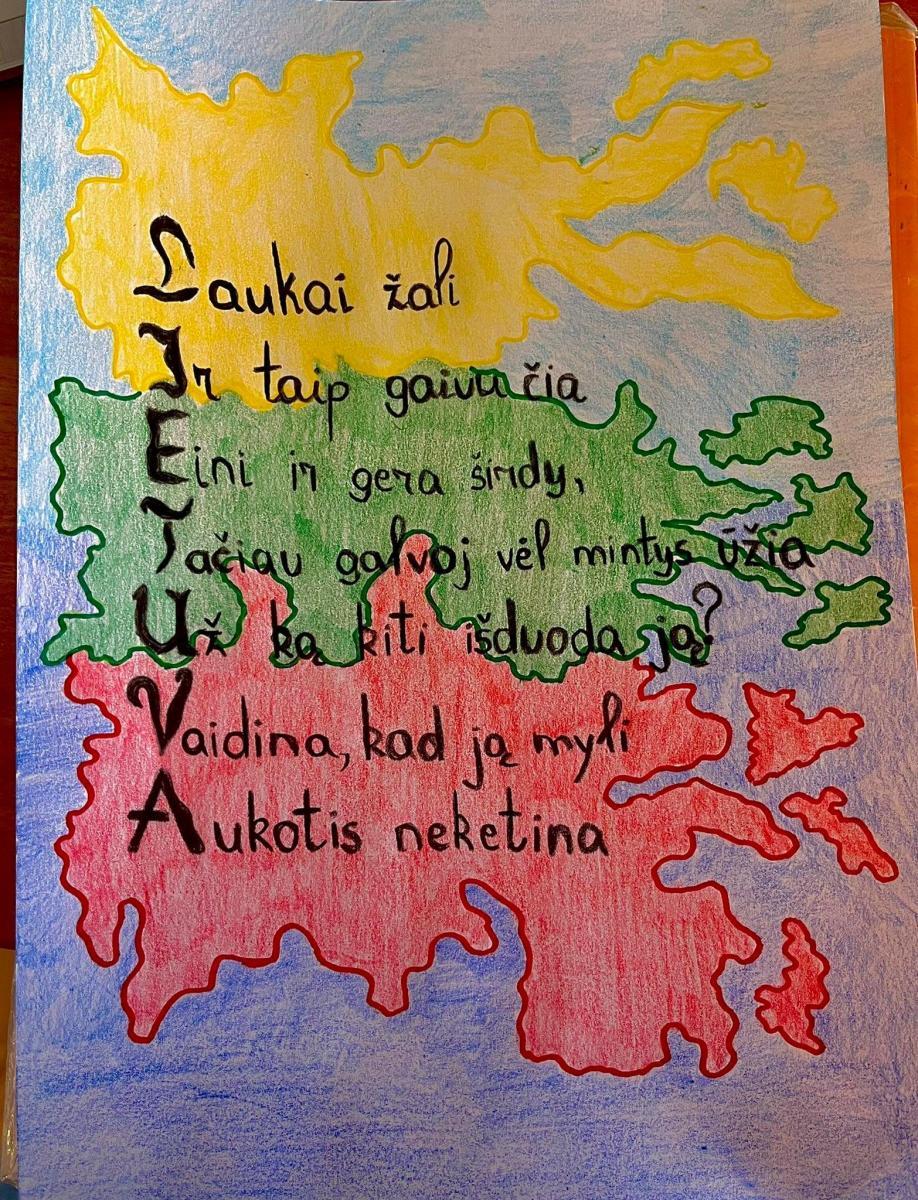 Laukai žali
Ir taip gaivu čia
Eini ir gera širdy,
Tačiau galvoj vėl mintys ūžia
Už ką kiti išduoda ją?
Vaidina, kad ją myli
Aukotis neketina